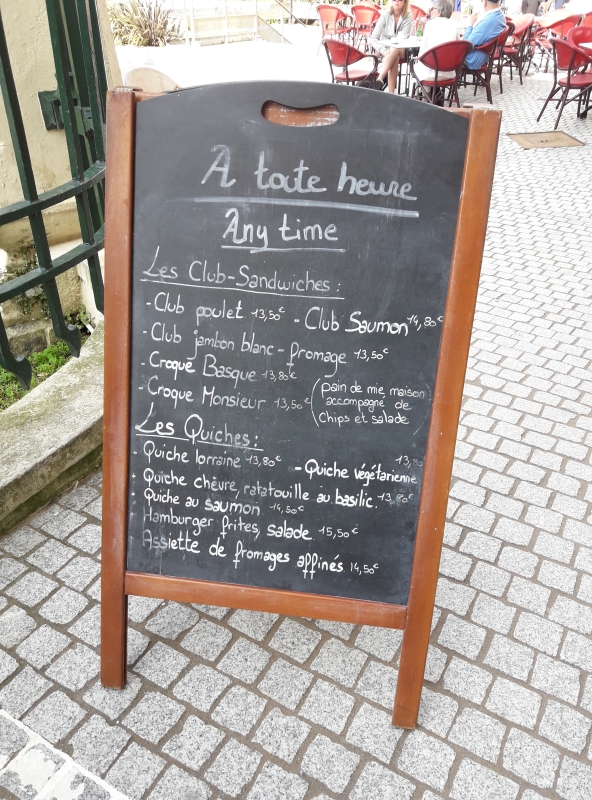 A toute heure
Any time
Les Club-Sandwiches :
- Club poulet 13,50€ - Club Saumon 14,80€
- Club jambon blanc - fromage 13,50€
- Croque Basque 13,80€
- Croque Monsieur 13,50€ (pain de mie maison
accompagné de
chips et salade)
Les Quiches :
- Quiche lorraine 13,80€ - Quiche végétarienne 13,80
- Quiche chèvre, ratatouille au basilic. 13,80€
- Quiche au saumon 14,50€
- Hamburger frites, salade 15,50€
- Assiette de fromages affinés 14,50€